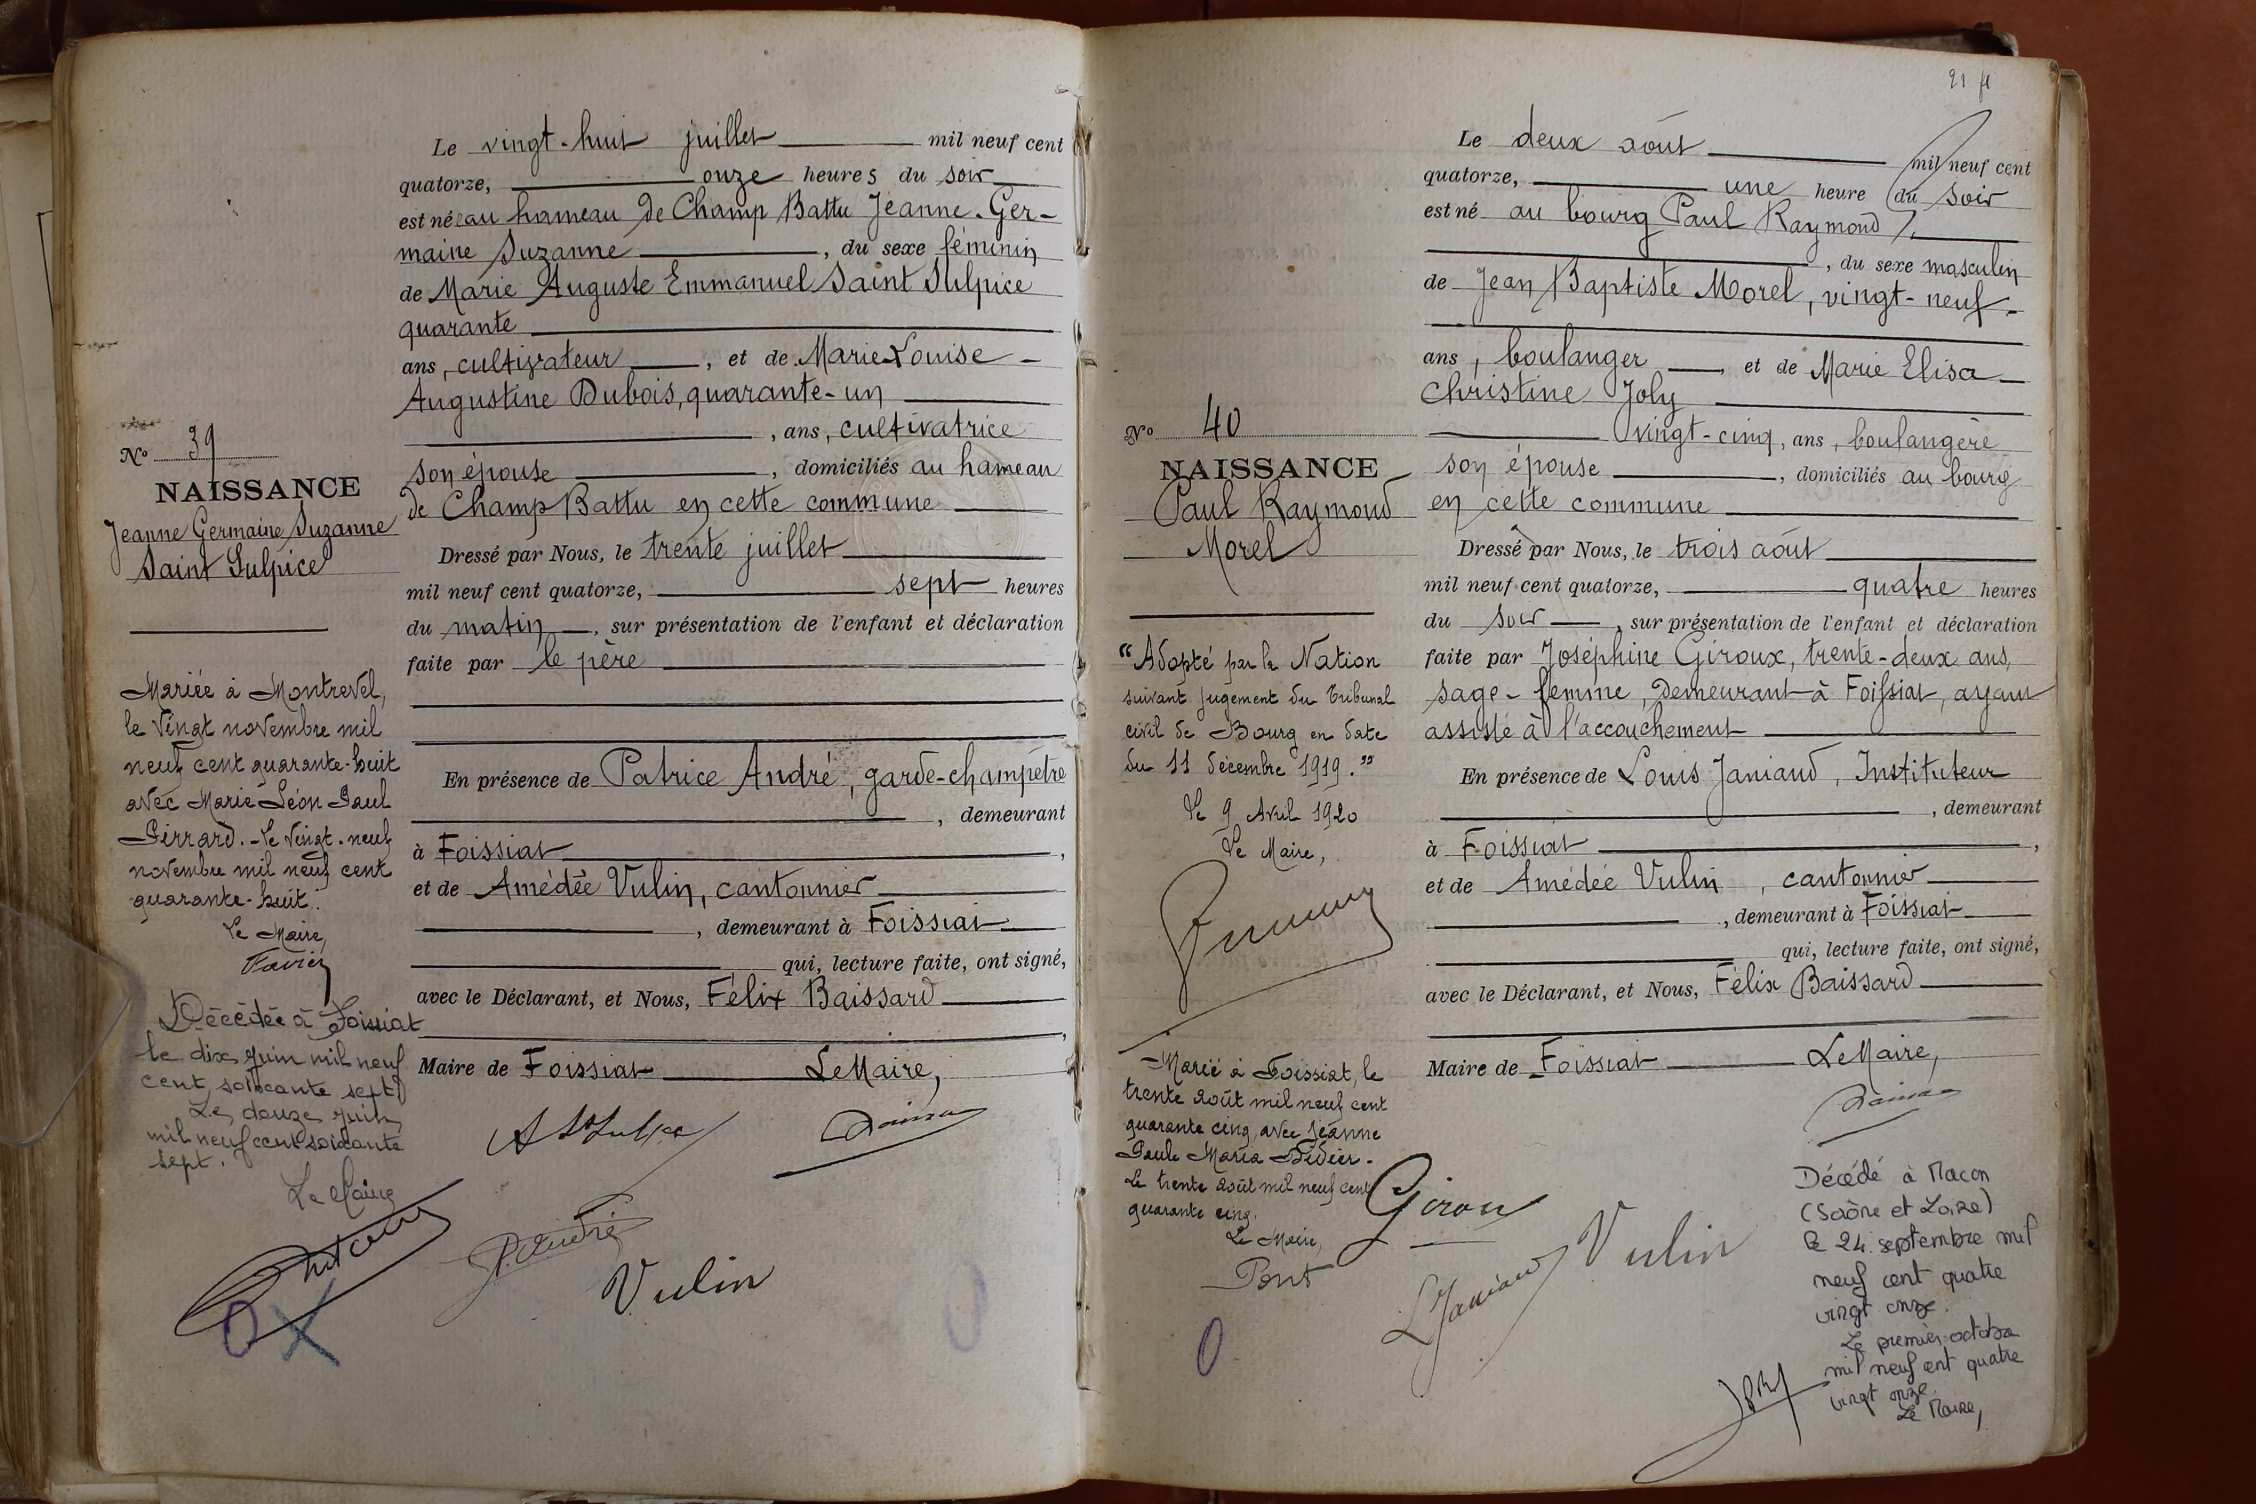 Le vingt-huit juillet mil neuf cent
quatorze, onze heures du soir
est née au hameau de Champ Battu Jeanne-Ger-
maine Suzanne , du sexe féminin
de Marie Auguste Emmanuel Saint Sulpice
quarante
ans, cultivateur , et de Marie-Louise-
Augustine Dubois, quarante-un
, ans, cultivatrice
son épouse , domiciliés au hameau
de Champ Battu en cette commune
Dressé par Nous, le trente juillet
mil neuf cent quatorze, sept heures
du matin , sur présentation de l'enfant et déclaration
faite par le père
En présence de Patrice André, garde-champêtre
, demeurant
à Foissiat ,
et de Amédée Vulin, cantonnier
, demeurant à Foissiat
qui, lecture faite, ont signé,
avec le Déclarant, et Nous, Félix Baissard
,
Maire de Foissiat Le Maire,
P. André
Vulin
No 39
NAISSANCE
Jeanne Germaine Suzanne
Saint Sulpice
Mariée à Montrevel,
le vingt novembre mil
neuf cent quarante-huit
avec Marie Léon Paul
Girrard. - Le vingt-neuf
novembre mil neuf cent
quarante-huit.
Le Maire,
Favier
Décédée à Foissiat
le dix juin mil neuf
cent soixante sept
Le douze juin
mil neuf cent soixante
sept.
Le Maire
OX
21
Le deux août mil neuf cent
quatorze, une heure du soir
est né au bourg Paul Raymond
, du sexe masculin
de Jean Baptiste Morel, vingt-neuf
ans, boulanger , et de Marie Elisa
Christine Joly
vingt-cinq, ans, boulangère
son épouse , domiciliés au bourg
en cette commune
Dressé par Nous, le trois août
mil neuf cent quatorze, quatre heures
du soir , sur présentation de l'enfant et déclaration
faite par Joséphine Giroux, trente-deux ans,
sage-femme, demeurant à Foissiat, ayant
assisté à l'accouchement
En présence de Louis Janiaud, Instituteur
, demeurant
à Foissiat ,
et de Amédée Vulin , cantonnier
, demeurant à Foissiat
qui, lecture faite, ont signé,
avec le Déclarant, et Nous, Félix Baissard
Maire de Foissiat Le Maire,
Giroux
L Janiaud
Vulin
No 40
NAISSANCE
Paul Raymond
Morel
"Adopté par la Nation
suivant jugement du Tribunal
civil de Bourg en date
du 11 décembre 1919."
Le 9 Avril 1920
Le Maire,
Marié à Foissiat, le
trente août mil neuf cent
quarante cinq, avec Jeanne
Paule Maria Didier.
Le trente août mil neuf cent
quarante cinq.
Le Maire,
Pont
0
Décédé à Macon
(Saône et Loire)
le 24 septembre mil
neuf cent quatre
vingt onze.
Le premier octobre
mil neuf cent quatre
vingt onze.
Le Maire,